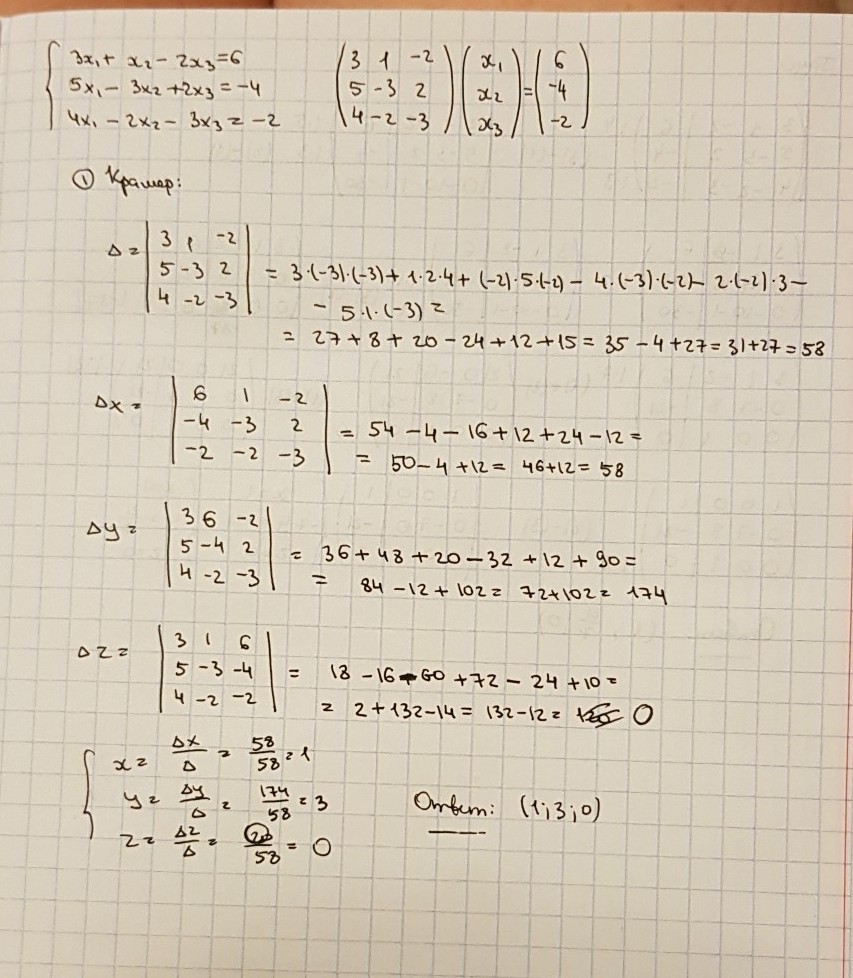 3x₁ + x₂ - 2x₃ = 6
5x₁ - 3x₂ + 2x₃ = -4
4x₁ - 2x₂ - 3x₃ = -2
3 1 -2
5 -3 2
4 -2 -3
x₁
x₂
x₃
=
6
-4
-2
① Крамер:
Δ =
3 1 -2
5 -3 2
4 -2 -3
= 3·(-3)·(-3) + 1·2·4 + (-2)·5·(-2) - 4·(-3)·(-2) - 2·(-2)·3 -
- 5·1·(-3) =
= 27 + 8 + 20 - 24 + 12 + 15 = 35 - 4 + 27 = 31 + 27 = 58
Δx =
6 1 -2
-4 -3 2
-2 -2 -3
= 54 - 4 - 16 + 12 + 24 - 12 =
= 50 - 4 + 12 = 46 + 12 = 58
Δy =
3 6 -2
5 -4 2
4 -2 -3
= 36 + 48 + 20 - 32 + 12 + 90 =
= 84 - 12 + 102 = 72 + 102 = 174
Δz =
3 1 6
5 -3 -4
4 -2 -2
= 18 - 16 - 60 + 72 - 24 + 10 =
= 2 + 132 - 14 = 132 - 12 = 0
x = Δx/Δ = 58/58 = 1
y = Δy/Δ = 174/58 = 3
z = Δz/Δ = /58 = 0
Ответ: (1; 3; 0)